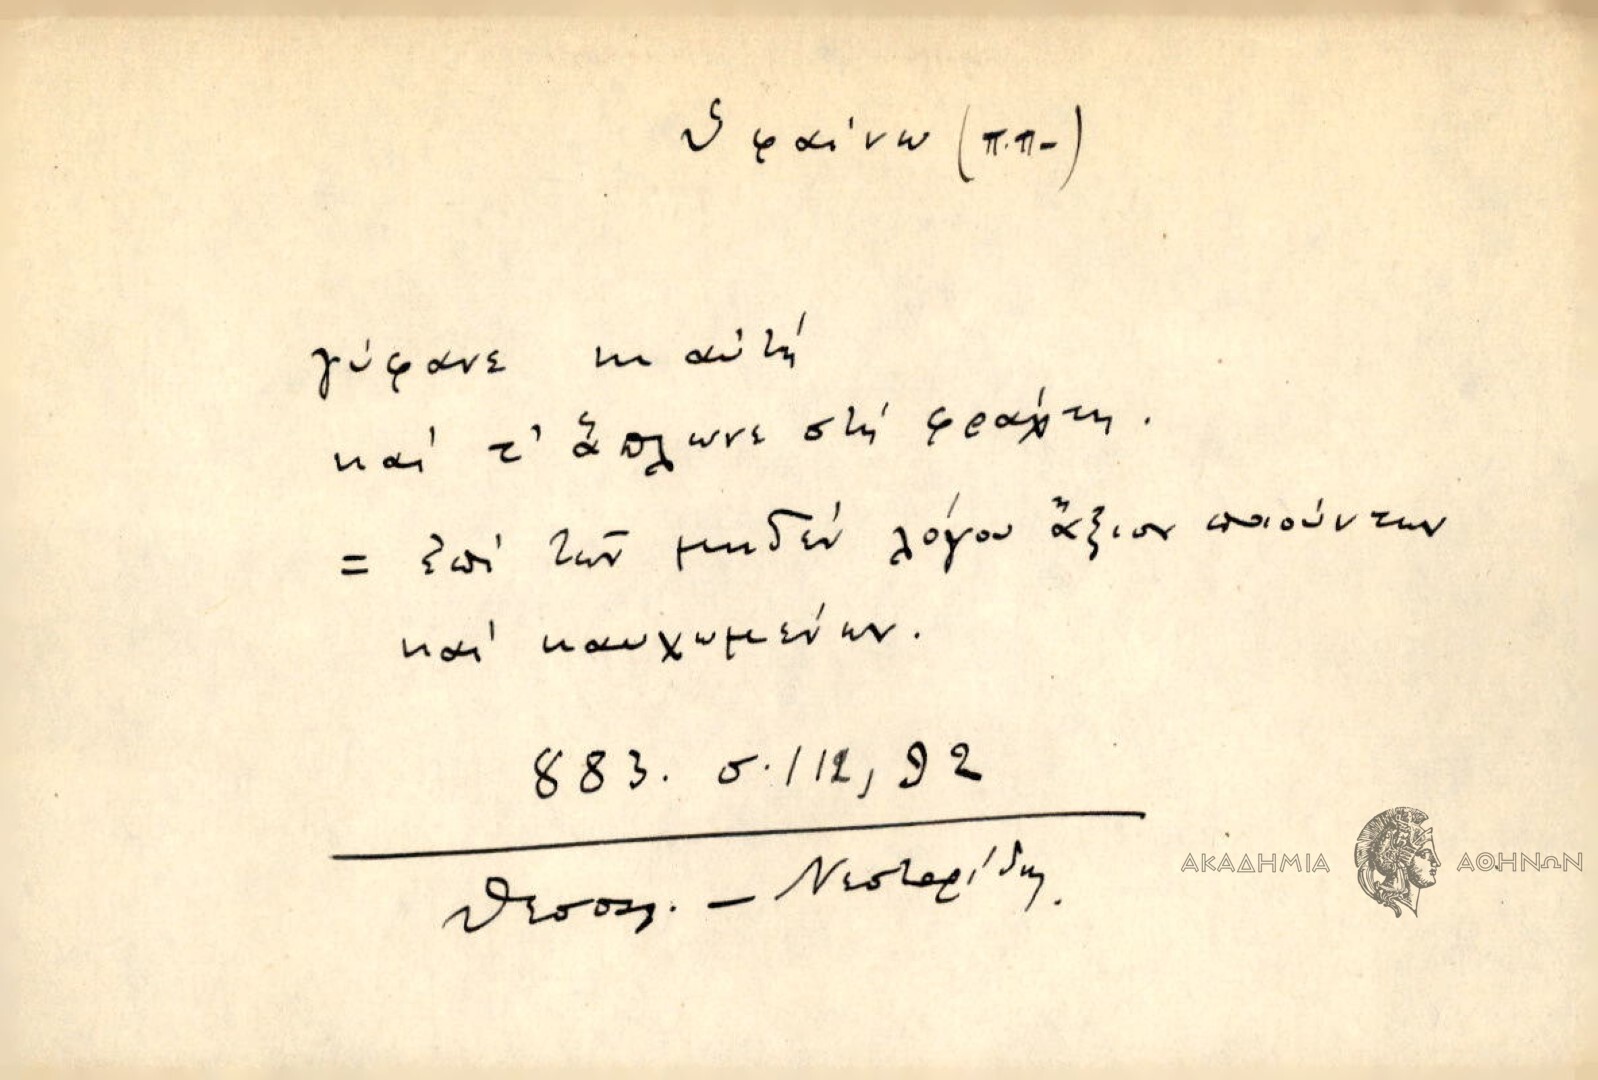 ὑφαίνω (π.π-)
γύφανε κι αὐτή
καί τ' ἅπλωνε στή φράχτη.
= ἐπί τῶν μηδέν λόγου ἄξιον ποιούντων
καί καυχωμένων.
883. σ. 112, 92
Θεσσαλ. – Νεστορίδη.
ΑΚΑΔΗΜΙΑ ΑΘΗΝΩΝ